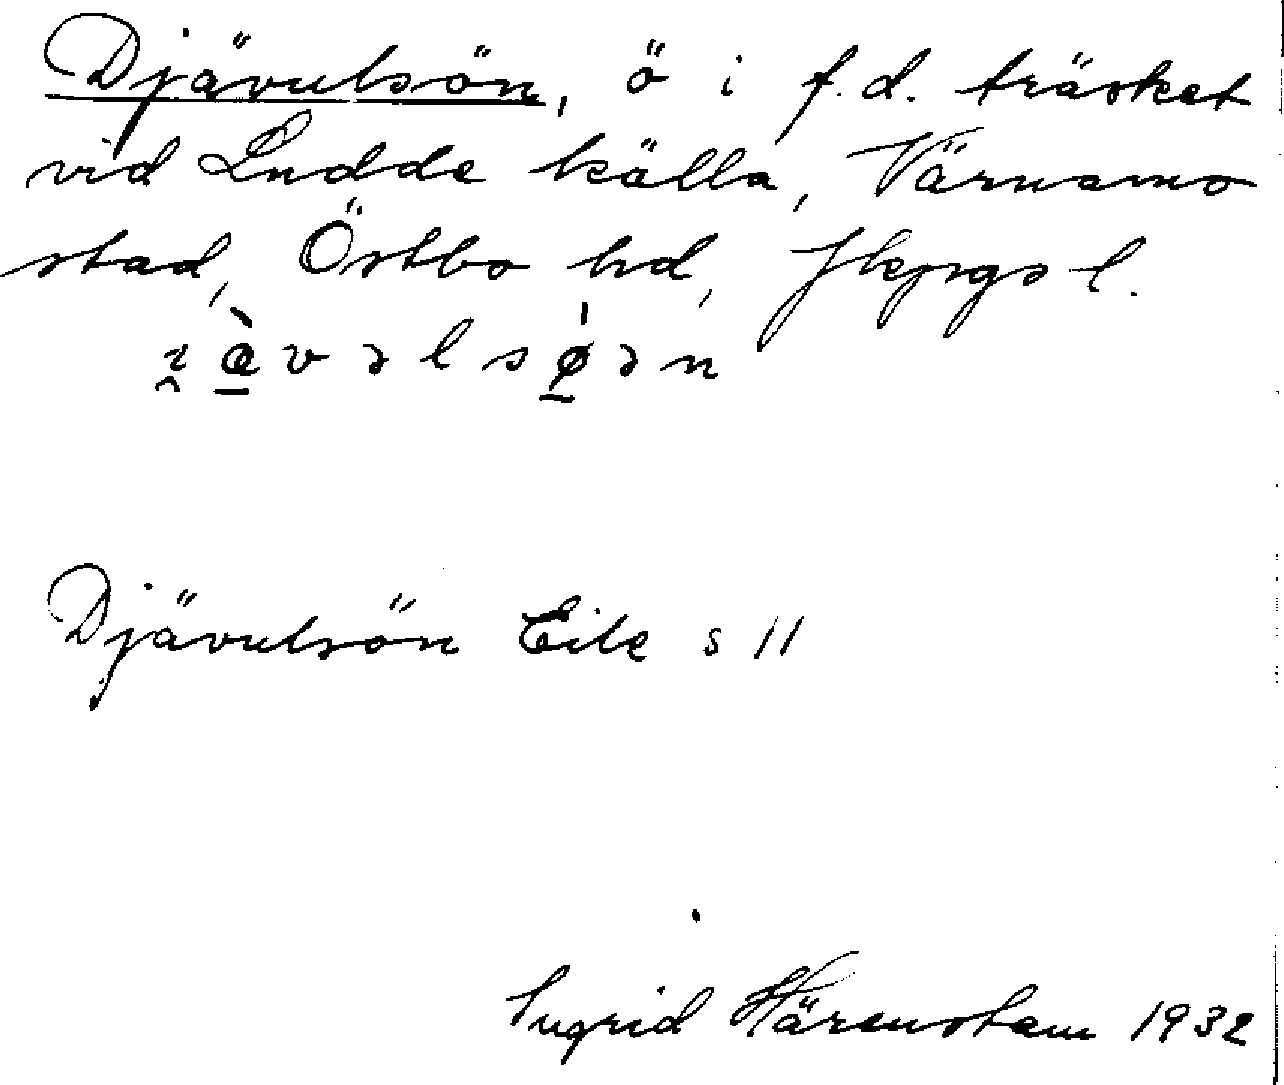 Djävulsön, ö i f.d. träsket
vid Ludde källa, Värnamo
stad, Östbo hd, Jkpgs l.
i̯æ̀vəlsǿən
Djävulsön Eile s 11
Ingrid Härenstam 1932